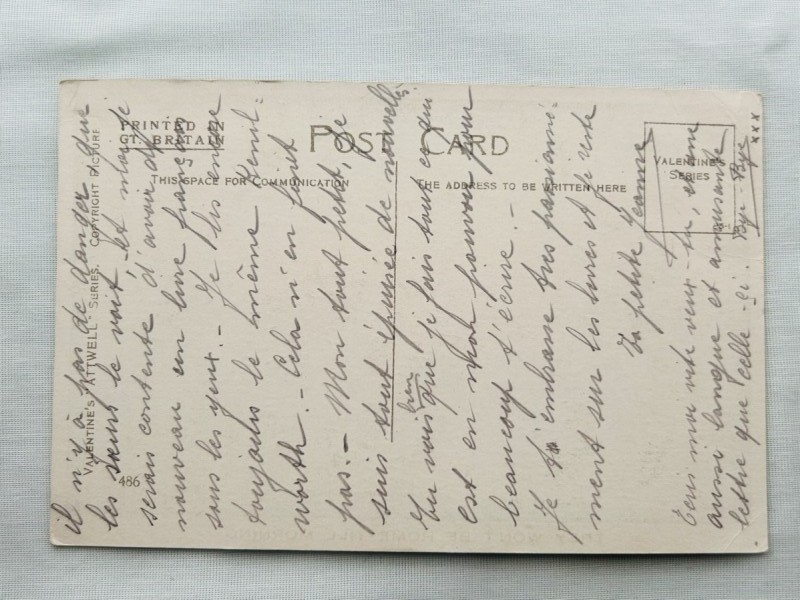 PRINTED IN
GT. BRITAIN
POST CARD
THIS SPACE FOR COMMUNICATION
THE ADDRESS TO BE WRITTEN HERE
VALENTINE'S
SERIES
VALENTINE'S "ATTWELL" SERIES. COPYRIGHT PICTURE
486
il n'y a pas de danger que
les sœurs le voit, et moi je
serais contente d'avoir de
nouveau un livre français
sous les yeux. - Je lis encore
toujours le même Kenil-
worth. - Cela n'en finit
pas. - Mon tout petit, je
suis tout épuisée de nouvelles,
tu vois bien que je fais tout ce qui
est en mon pouvoir pour
beaucoup t'écrire. -
Je t'embrasse très passionné-
ment sur les lèvres et je reste
Ta petite Jeanne
Écris moi vite veux-tu, et une
aussi longue et amusante
lettre que celle-ci. Bye-Bye
xxx